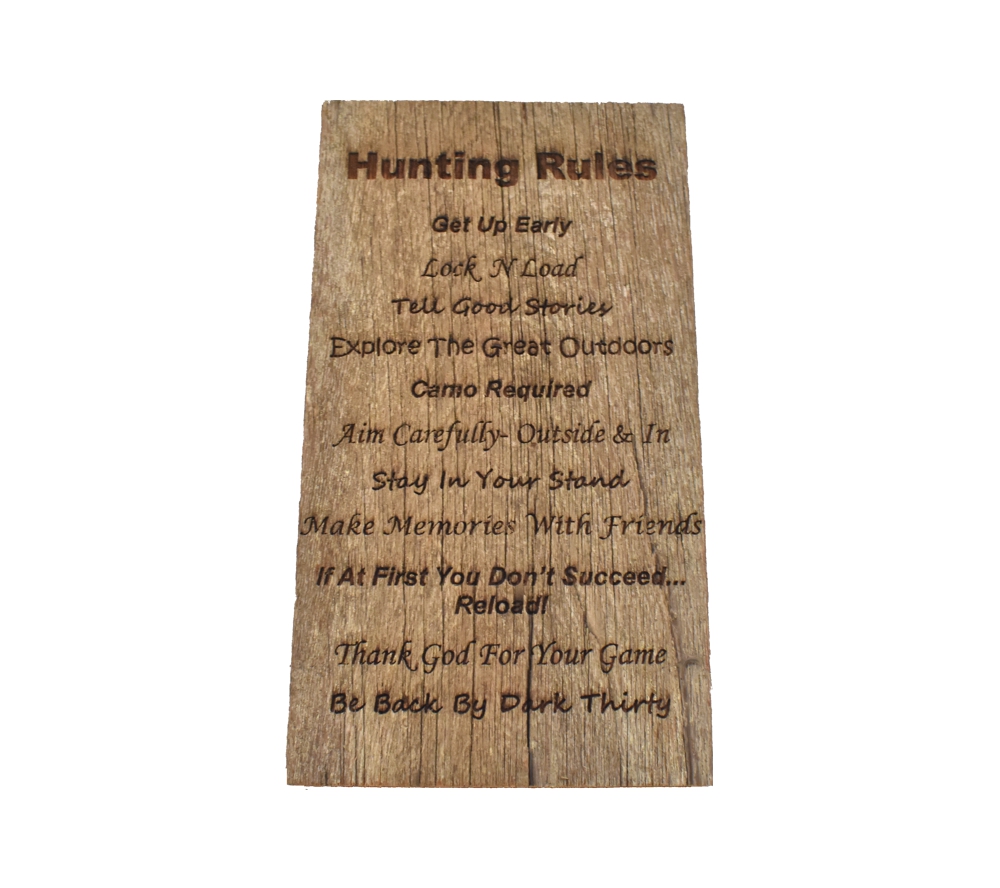 Hunting Rules
Get Up Early
Lock N Load
Tell Good Stories
Explore The Great Outdoors
Camo Required
Aim Carefully- Outside & In
Stay In Your Stand
Make Memories With Friends
If At First You Don't Succeed...
Reload!
Thank God For Your Game
Be Back By Dark Thirty